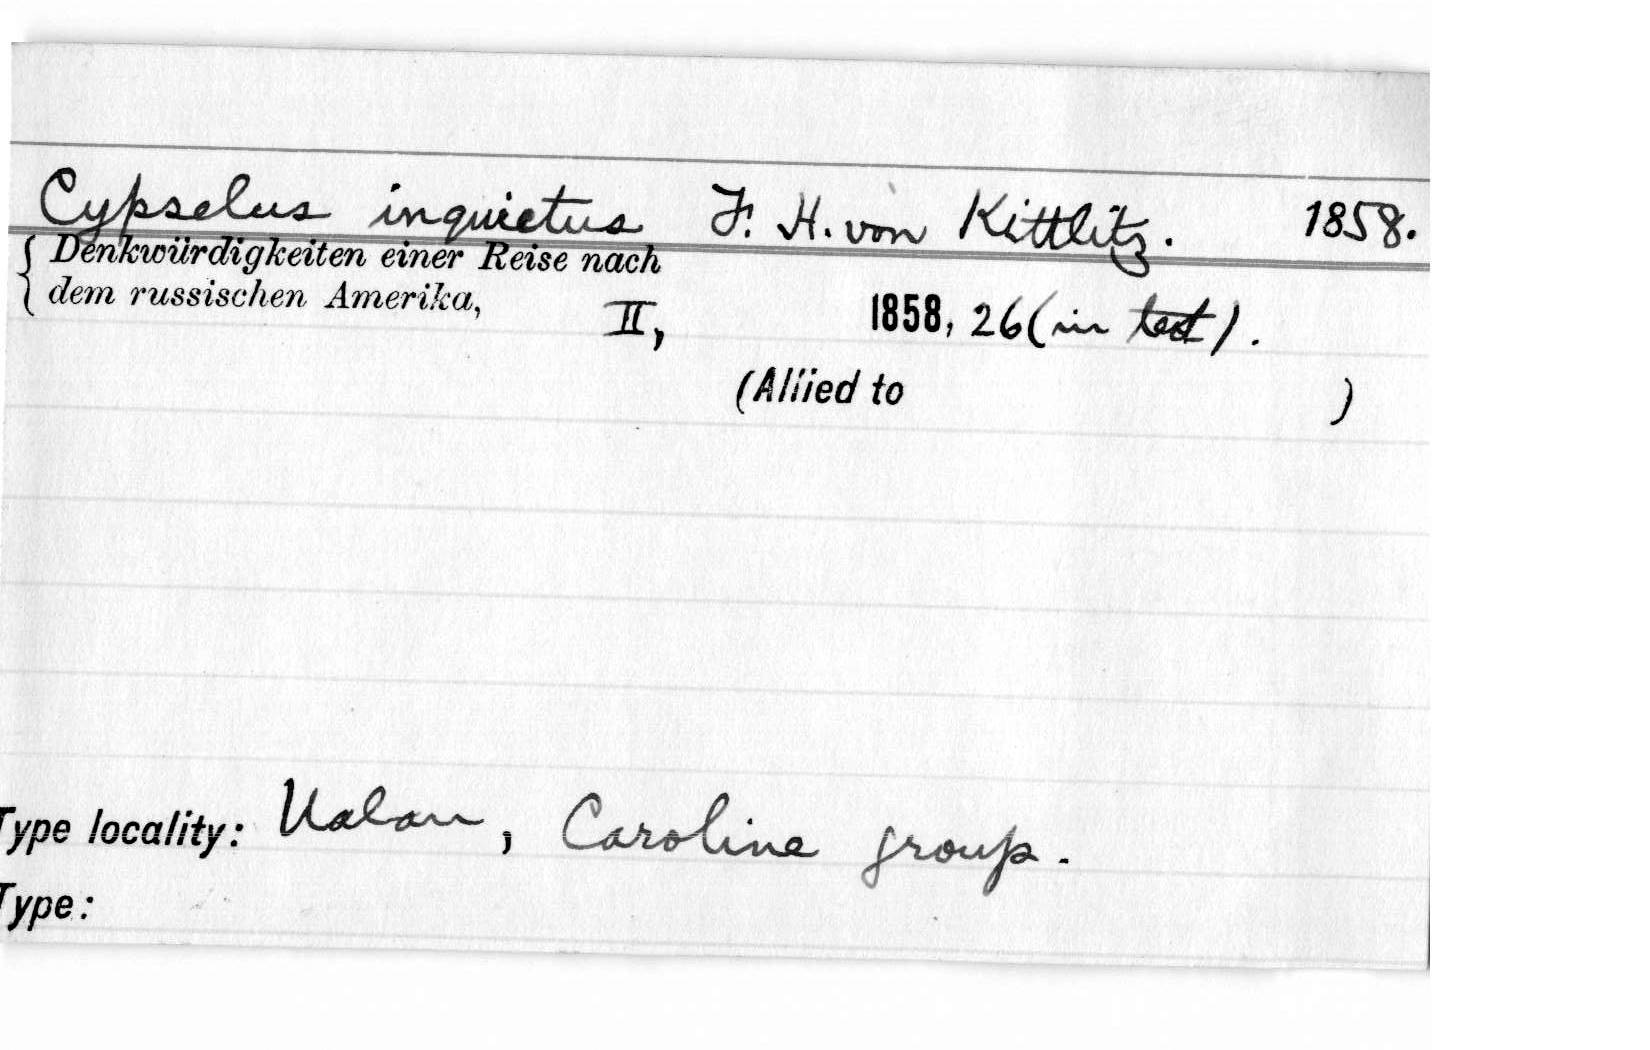 Cypselus inquietus F. H. von Kittlitz. 1858.
Denkwürdigkeiten einer Reise nach
dem russischen Amerika,
II, 1858, 26 (in text).
(Allied to )
Type locality: Ualan, Caroline group.
Type: